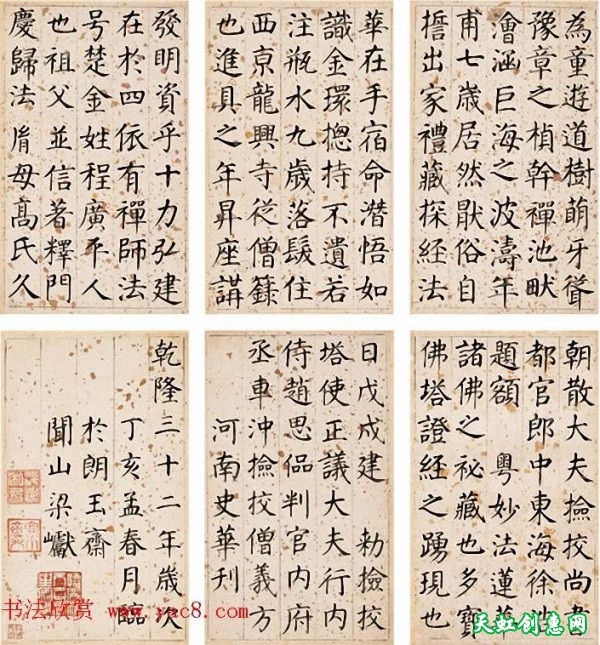 為童遊道樹萌牙聳
豫章之楨幹禪池畎
澮涵巨海之波濤年
甫七歲居然猒俗自
誓出家禮藏探經法
華在手宿命潛悟如
識金環揔持不遺若
注瓶水九歲落髮住
西京龍興寺從僧籙
也進具之年昇座講
發明資乎十力弘建
在於四依有禪師法
号楚金姓程廣平人
也祖父並信著釋門
慶歸法胤母高氏久
朝散大夫撿挍尚書
都官郎中東海徐浩
題額 粵妙法蓮華
諸佛之祕藏也多寶
佛塔證經之踴現也
日戊戌建 勅撿挍
塔使正議大夫行內
侍趙思侃判官內府
丞車沖撿挍僧義方
河南史華刊
乾隆三十二年歲次
丁亥孟春月臨
於朗玉齋
聞山梁巘
书法欣赏 www.yac8.com
天虹创惠网